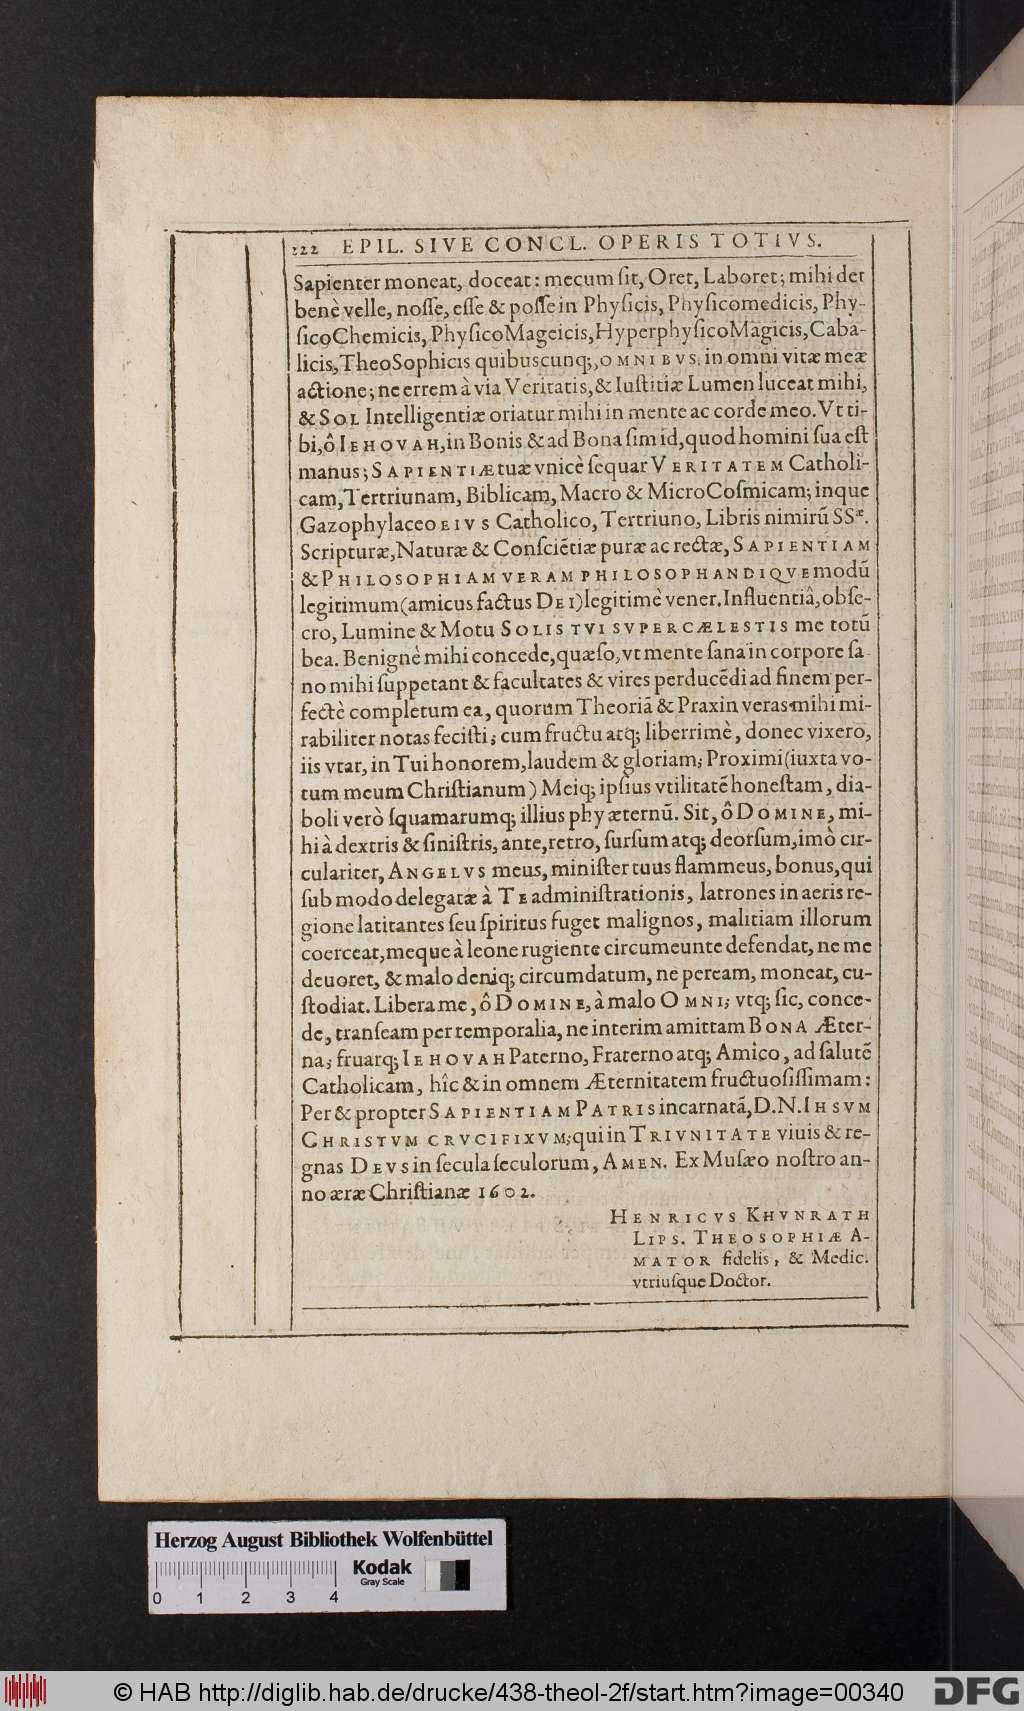 222 EPIL. SIVE CONCL. OPERIS TOTIVS.
Sapienter moneat, doceat: mecum ſit, Oret, Laboret; mihi det
benè velle, noſſe, eſſe & poſſe in Phyſicis, Phyſicomedicis, Phy-
ſicoChemicis, PhyſicoMageicis, HyperphyſicoMagicis, Caba-
licis, TheoSophicis quibuscunq;, OMNIBVS, in omni vitæ meæ
actione; ne errem à via Veritatis, & Iuſtitiæ Lumen luceat mihi,
& SOL Intelligentiæ oriatur mihi in mente ac corde meo. Vt ti-
bi, ô IEHOVAH, in Bonis & ad Bona ſim id, quod homini ſua eſt
manus; SAPIENTIÆ tuæ vnicè ſequar VERITATEM Catholi-
cam, Tertriunam, Biblicam, Macro & MicroCoſmicam; inque
Gazophylaceo EIVS Catholico, Tertriuno, Libris nimirũ SSæ.
Scripturæ, Naturæ & Conſciẽtiæ puræ ac rectæ, SAPIENTIAM
& PHILOSOPHIAM VERAM PHILOSOPHANDIQVE modũ
legitimum (amicus factus DEI) legitimè vener. Influentiâ, obſe-
cro, Lumine & Motu SOLIS TVI SVPERCÆLESTIS me totũ
bea. Benignè mihi concede, quæſo, vt mente ſana in corpore ſa-
no mihi ſuppetant & facultates & vires perducẽdi ad finem per-
fectè completum ea, quorum Theoriã & Praxin veras mihi mi-
rabiliter notas feciſti; cum fructu atq; liberrimè, donec vixero,
iis vtar, in Tui honorem, laudem & gloriam; Proximi (iuxta vo-
tum meum Chriſtianum) Meiq; ipſius vtilitatẽ honeſtam, dia-
boli verò ſquamarumq; illius phy æternũ. Sit, ô DOMINE, mi-
hi à dextris & ſiniſtris, ante, retro, ſurſum atq; deorſum, imò cir-
culariter, ANGELVS meus, miniſter tuus flammeus, bonus, qui
ſub modo delegatæ à TE adminiſtrationis, latrones in aeris re-
gione latitantes ſeu ſpiritus fuget malignos, malitiam illorum
coerceat, meque à leone rugiente circumeunte defendat, ne me
deuoret, & malo deniq; circumdatum, ne peream, moneat, cu-
ſtodiat. Libera me, ô DOMINE, à malo OMNI; vtq; ſic, conce-
de, tranſeam per temporalia, ne interim amittam BONA Æter-
na; fruarq; IEHOVAH Paterno, Fraterno atq; Amico, ad ſalutẽ
Catholicam, hîc & in omnem Æternitatem fructuoſiſſimam:
Per & propter SAPIENTIAM PATRIS incarnatã, D. N. IHSVM
CHRISTVM CRVCIFIXVM; qui in TRIVNITATE viuis & re-
gnas DEVS in ſecula ſeculorum, AMEN. Ex Muſæo noſtro an-
no æræ Chriſtianæ 1602.
HENRICVS KHVNRATH
LIPS. THEOSOPHIÆ A-
MATOR fidelis, & Medic.
vtriuſque Doctor.
Herzog August Bibliothek Wolfenbüttel
Kodak
Gray Scale
0 1 2 3 4
© HAB http://diglib.hab.de/drucke/438-theol-2f/start.htm?image=00340
DFG